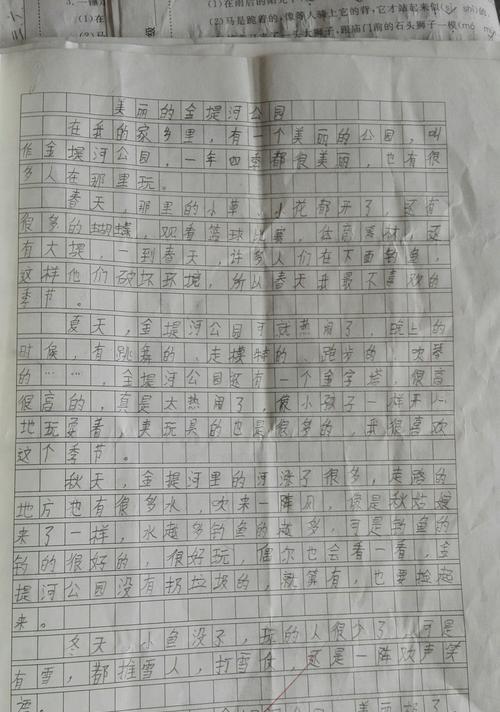 (1)在雨后的阳
(2)马是跪着的,像等人骑上它的背,它才站起来似(sì shì)的.
石头狮子一模(mó mú
美丽的金堤河公园
在我的家乡里，有一个美丽的公园，叫
作金堤河公园，一年四季都很美丽，也有很
多人在那里玩。
春天，那里的小草、小花都开了，还有
很多的蝴蝶，观看篮球比赛，体育器材，还
有大堤，一到春天，许多人们在下面钓鱼，
这样他们破坏环境，所以春天我最不喜欢的
季节。
夏天，金堤河公园可就热闹了，晚上的
时候，有跳舞的、走模特的、跑步的、吹琴
的……，金堤河公园还有一个金字塔，很高
很高的，真是太热闹了，像小孩子一样开心
地玩耍着，卖玩具的也是很多的，我很喜欢
这个季节。
秋天，金堤河里的河涨了很多，走路的
地方也有很多水，吹来一阵风，像是秋姑娘
来了一样，水越多钓鱼的越多，可是钓鱼的
钓的很好的，很好玩，偶尔也会看一看，金
堤河公园没有扔垃圾的，就算有，也要捡起
来。
冬天，小鱼没了，玩的人很少了，可是
有雪，都推雪人，打雪仗，还是一阵欢声笑